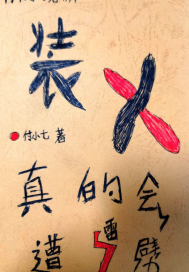 装X
付小七 著
真的会
遭雷劈